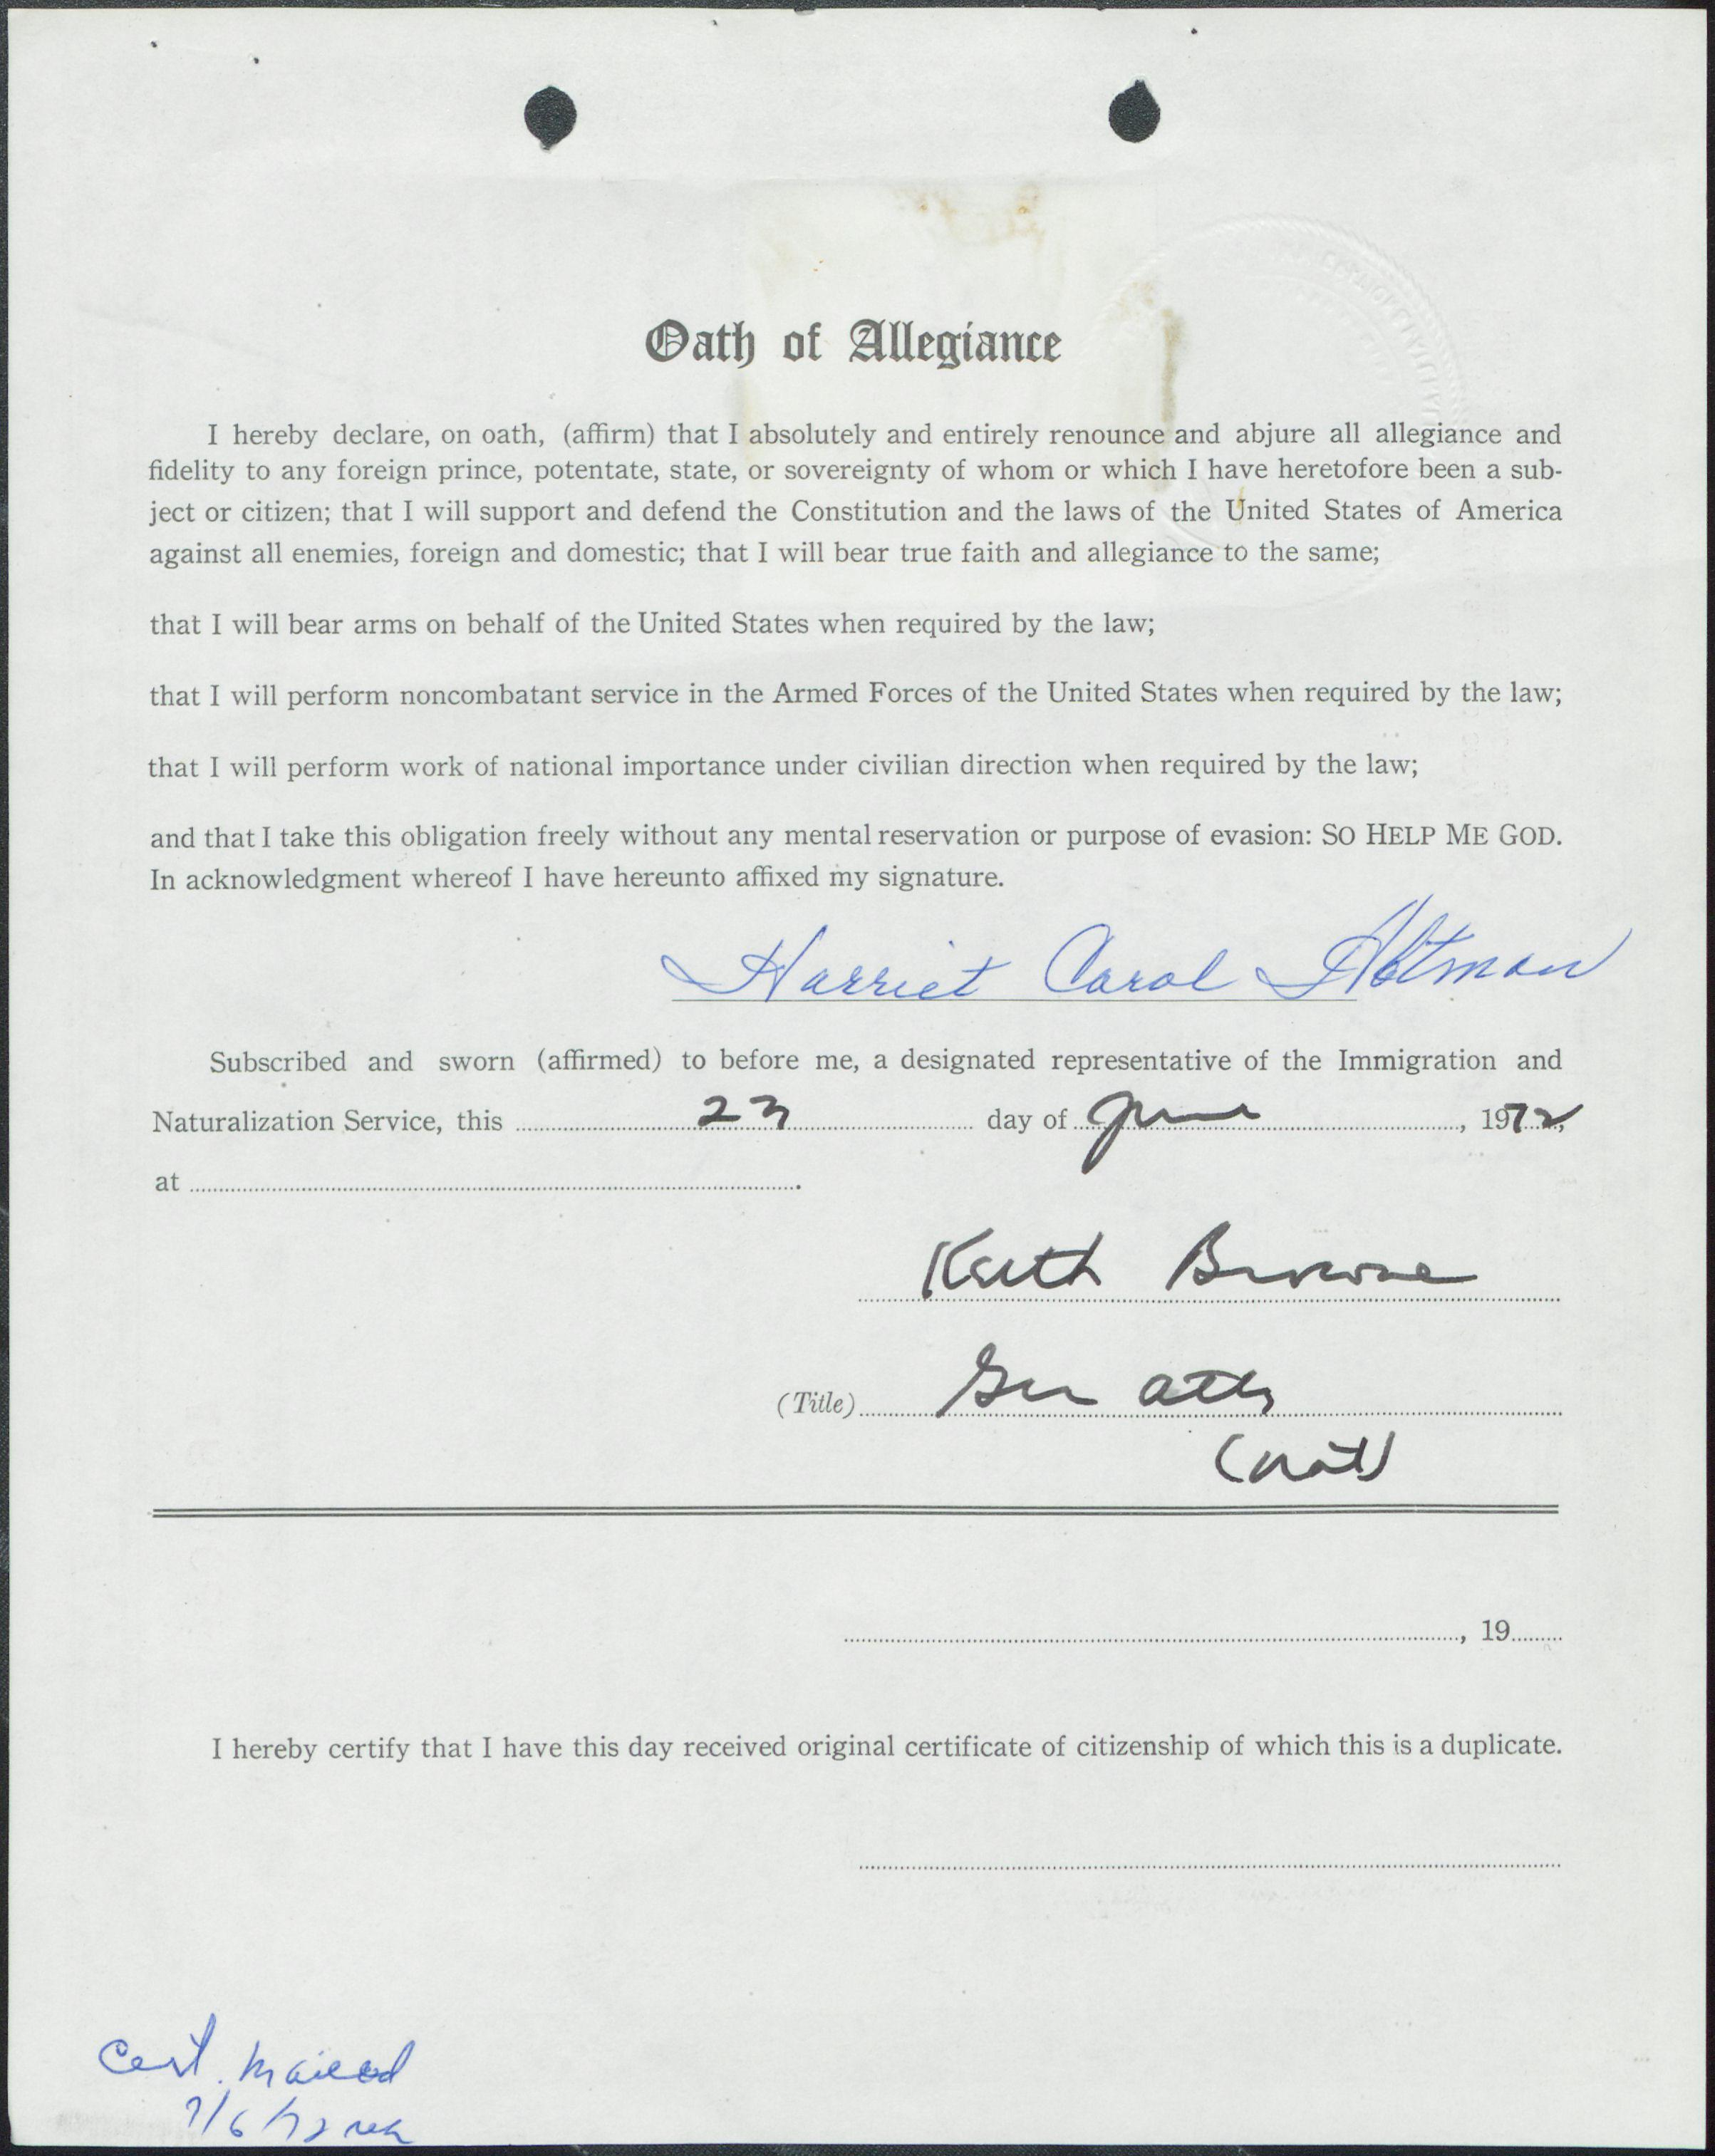 Oath of Allegiance
I hereby declare, on oath, (affirm) that I absolutely and entirely renounce and abjure all allegiance and
fidelity to any foreign prince, potentate, state, or sovereignty of whom or which I have heretofore been a sub-
ject or citizen; that I will support and defend the Constitution and the laws of the United States of America
against all enemies, foreign and domestic; that I will bear true faith and allegiance to the same;
that I will bear arms on behalf of the United States when required by the law;
that I will perform noncombatant service in the Armed Forces of the United States when required by the law;
that I will perform work of national importance under civilian direction when required by the law;
and that I take this obligation freely without any mental reservation or purpose of evasion: SO HELP ME GOD.
In acknowledgment whereof I have hereunto affixed my signature.
Harriet Carol
Subscribed and sworn (affirmed) to before me, a designated representative of the Immigration and
Naturalization Service, this 23 day of June, 1972,
at
Keith Browne
(Title) Gen atty
(nat)
, 19
I hereby certify that I have this day received original certificate of citizenship of which this is a duplicate.
Cert. mailed
7/6/72